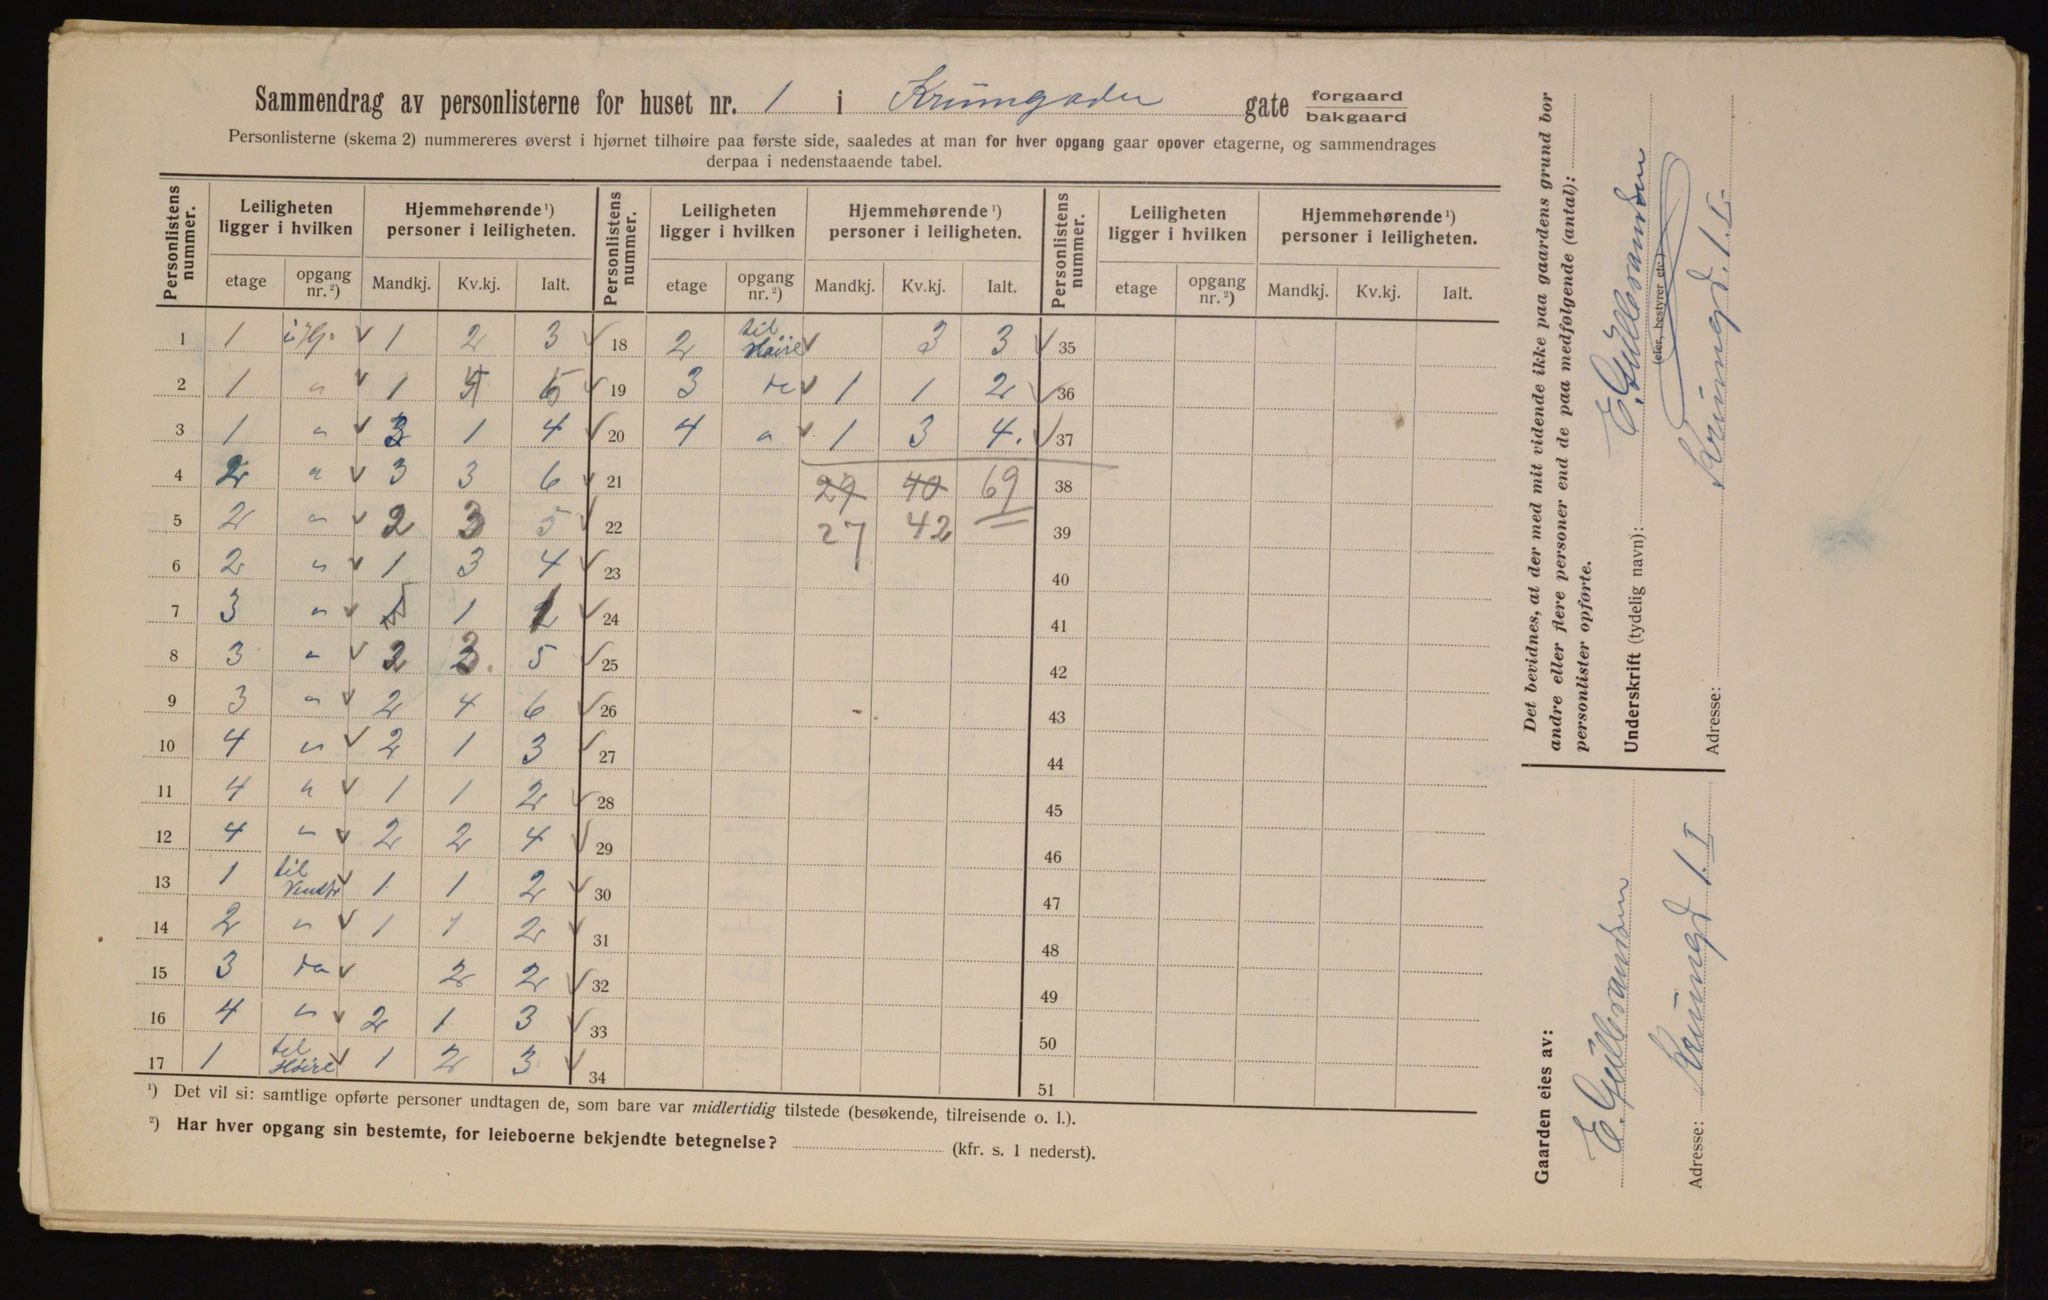 Sammendrag av personlisterne for huset nr. 1 i Krumgaden gate forgaard bakgaard
Personlisterne (skema 2) nummereres øverst i hjørnet tilhøire paa første side, saaledes at man for hver opgang gaar opover etagerne, og sammendrages
derpaa i nedenstaaende tabel.
Personlistens nummer. Leiligheten ligger i hvilken Hjemmehørende ¹) personer i leiligheten. Personlistens nummer. Leiligheten ligger i hvilken Hjemmehørende ¹) personer i leiligheten. Personlistens nummer. Leiligheten ligger i hvilken Hjemmehørende ¹) personer i leiligheten.
etage opgang nr. ²) Mandkj. Kv.kj. Ialt. etage opgang nr. ²) Mandkj. Kv.kj. Ialt. etage opgang nr. ²) Mandkj. Kv.kj. Ialt.
1 1 ✓ 1 2 3 ✓ 18 2 til Høire ✓ 3 3 ✓ 35
2 1 " ✓ 1 4 5 ✓ 19 3 do ✓ 1 1 2 ✓ 36
3 1 " ✓ 3 1 4 ✓ 20 4 " ✓ 1 3 4. ✓ 37
4 2 " ✓ 3 3 6 ✓ 21 29 40 69 38
5 2 " ✓ 2 3 5 ✓ 22 27 42 39
6 2 " ✓ 1 3 4 ✓ 23 40
7 3 " ✓ 1 1 ✓ 24 41
8 3 " ✓ 2 3 5 ✓ 25 42
9 3 " ✓ 2 4 6 ✓ 26 43
10 4 " ✓ 2 1 3 ✓ 27 44
11 4 " ✓ 1 1 2 ✓ 28 45
12 4 " ✓ 2 2 4 ✓ 29 46
13 1 til Venstr ✓ 1 1 2 ✓ 30 47
14 2 " ✓ 1 1 2 ✓ 31 48
15 3 do ✓ 2 2 ✓ 32 49
16 4 " ✓ 2 1 3 ✓ 33 50
17 1 til Høire ✓ 1 2 3 ✓ 34 51
¹) Det vil si: samtlige opførte personer undtagen de, som bare var midlertidig tilstede (besøkende, tilreisende o. l.).
²) Har hver opgang sin bestemte, for leieboerne bekjendte betegnelse? (kfr. s. 1 nederst).
Det bevidnes, at der med mit vidende ikke paa gaardens grund bor
andre eller flere personer end de paa medfølgende (antal):
personlister opførte.
Underskrift (tydelig navn): E. Gulbrandsen
(eier, bestyrer etc.)
Adresse: Krumgd. 1. I.
Gaarden eies av:
E. Gulbrandsen
Adresse: Krumgd 1. I